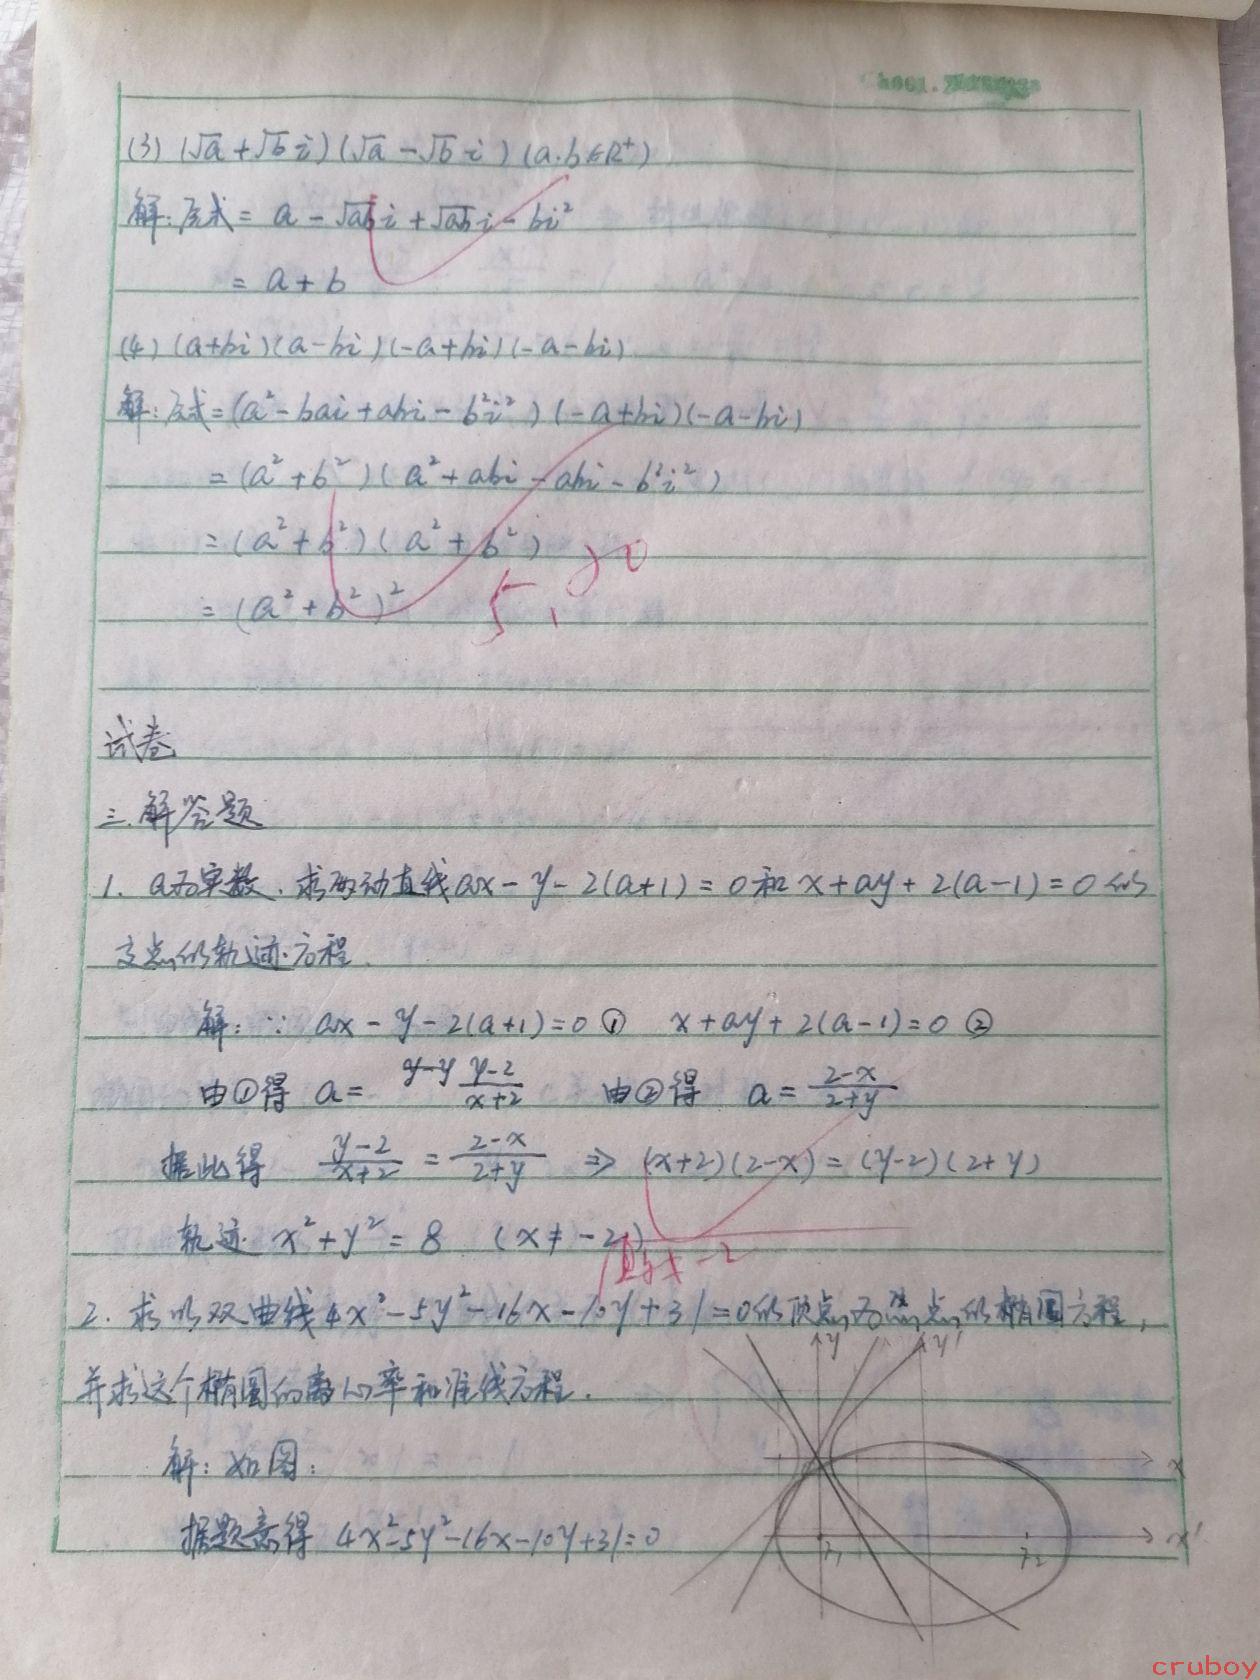 (3) (√a+√b i)(√a-√b i) (a.b∈R⁺)
解:原式= a-√ab i+√ab i-bi²
= a+b
(4) (a+bi)(a-bi)(-a+bi)(-a-bi)
解:原式=(a²-bai+abi-b²i²)(-a+bi)(-a-bi)
=(a²+b²)(a²+abi-abi-b²i²)
=(a²+b²)(a²+b²)
=(a²+b²)²
5,20
试卷
三.解答题
1. a为实数.求两动直线ax-y-2(a+1)=0和x+ay+2(a-1)=0的
交点的轨迹方程.
解:∵ ax-y-2(a+1)=0① x+ay+2(a-1)=0②
由①得 a= (y-2)/(x+2) 由②得 a=(2-x)/(2+y)
据此得 (y-2)/(x+2)=(2-x)/(2+y) ⇒ (x+2)(2-x)=(y-2)(2+y)
轨迹 x²+y²=8 (x≠-2)
2. 求以双曲线4x²-5y²-16x-10y+31=0的顶点为焦点的椭圆方程,
并求这个椭圆的离心率和准线方程.
y y'
解:如图:
x
据题意得 4x²-5y²-16x-10y+31=0
F₁ F₂ x'
cruboy